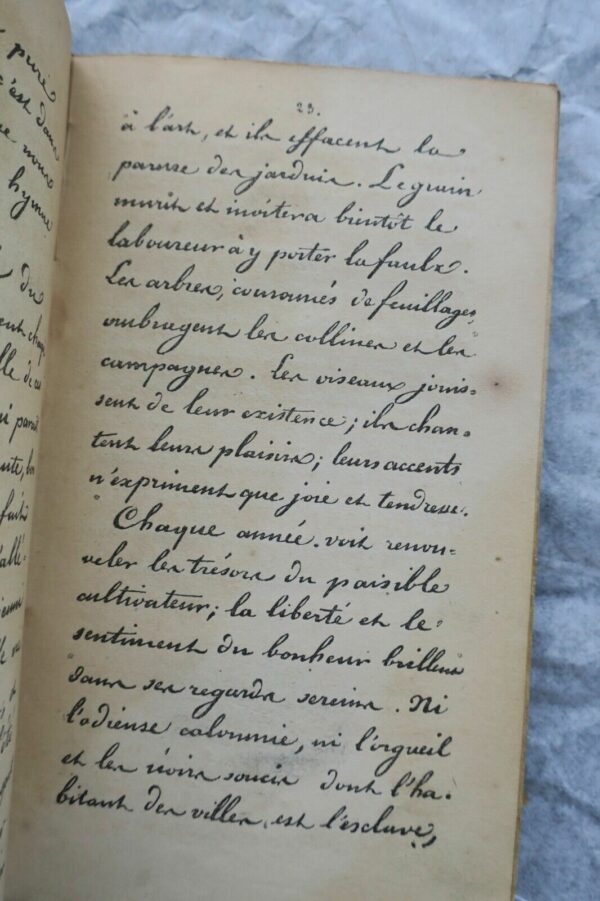 pure
c'est dans
nous
hymne
du
23.
à l'art, et ils effacent la
parure des jardins. Le grain
murit et invitera bientôt le
laboureur à y porter la faulx.
Les arbres, couronnés de feuillages,
ombragent les collines et les
campagnes. Les oiseaux jouis-
sent de leur existence; ils chan-
tent leurs plaisirs; leurs accents
n'expriment que joie et tendresse.
Chaque année voit renou-
veler les trésors du paisible
cultivateur; la liberté et le
sentiment du bonheur brillent
dans ses regards sereins. Ni
l'odieuse calomnie, ni l'orgueil
et les noirs soucis dont l'ha-
bitant des villes est l'esclave,